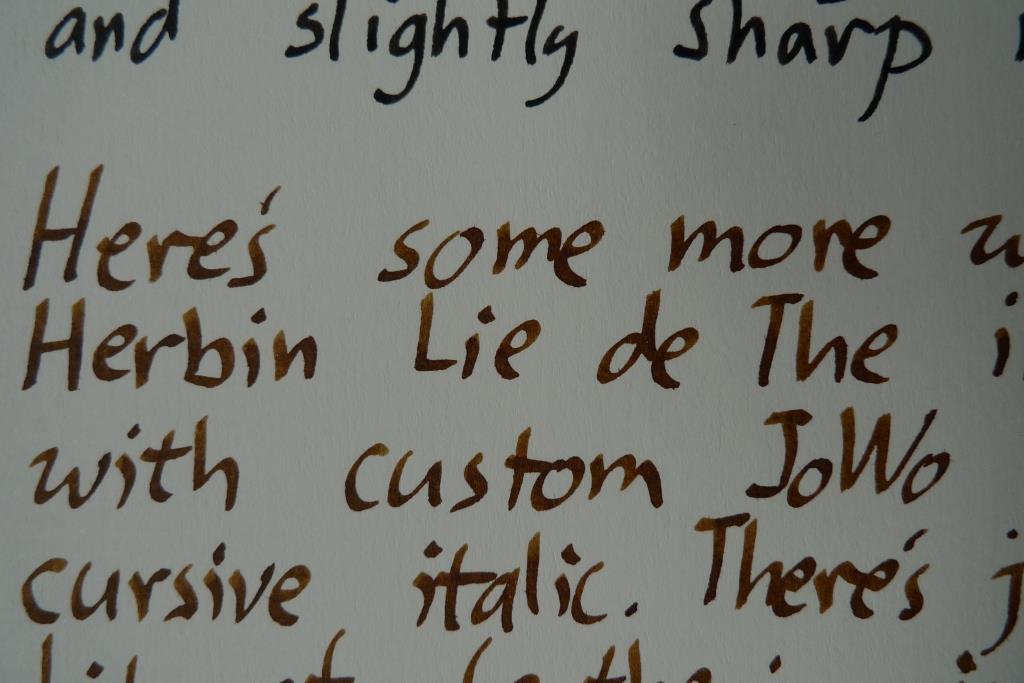 and slightly sharp
Here's some more
Herbin Lie de The
with custom JoWo
cursive italic. There's